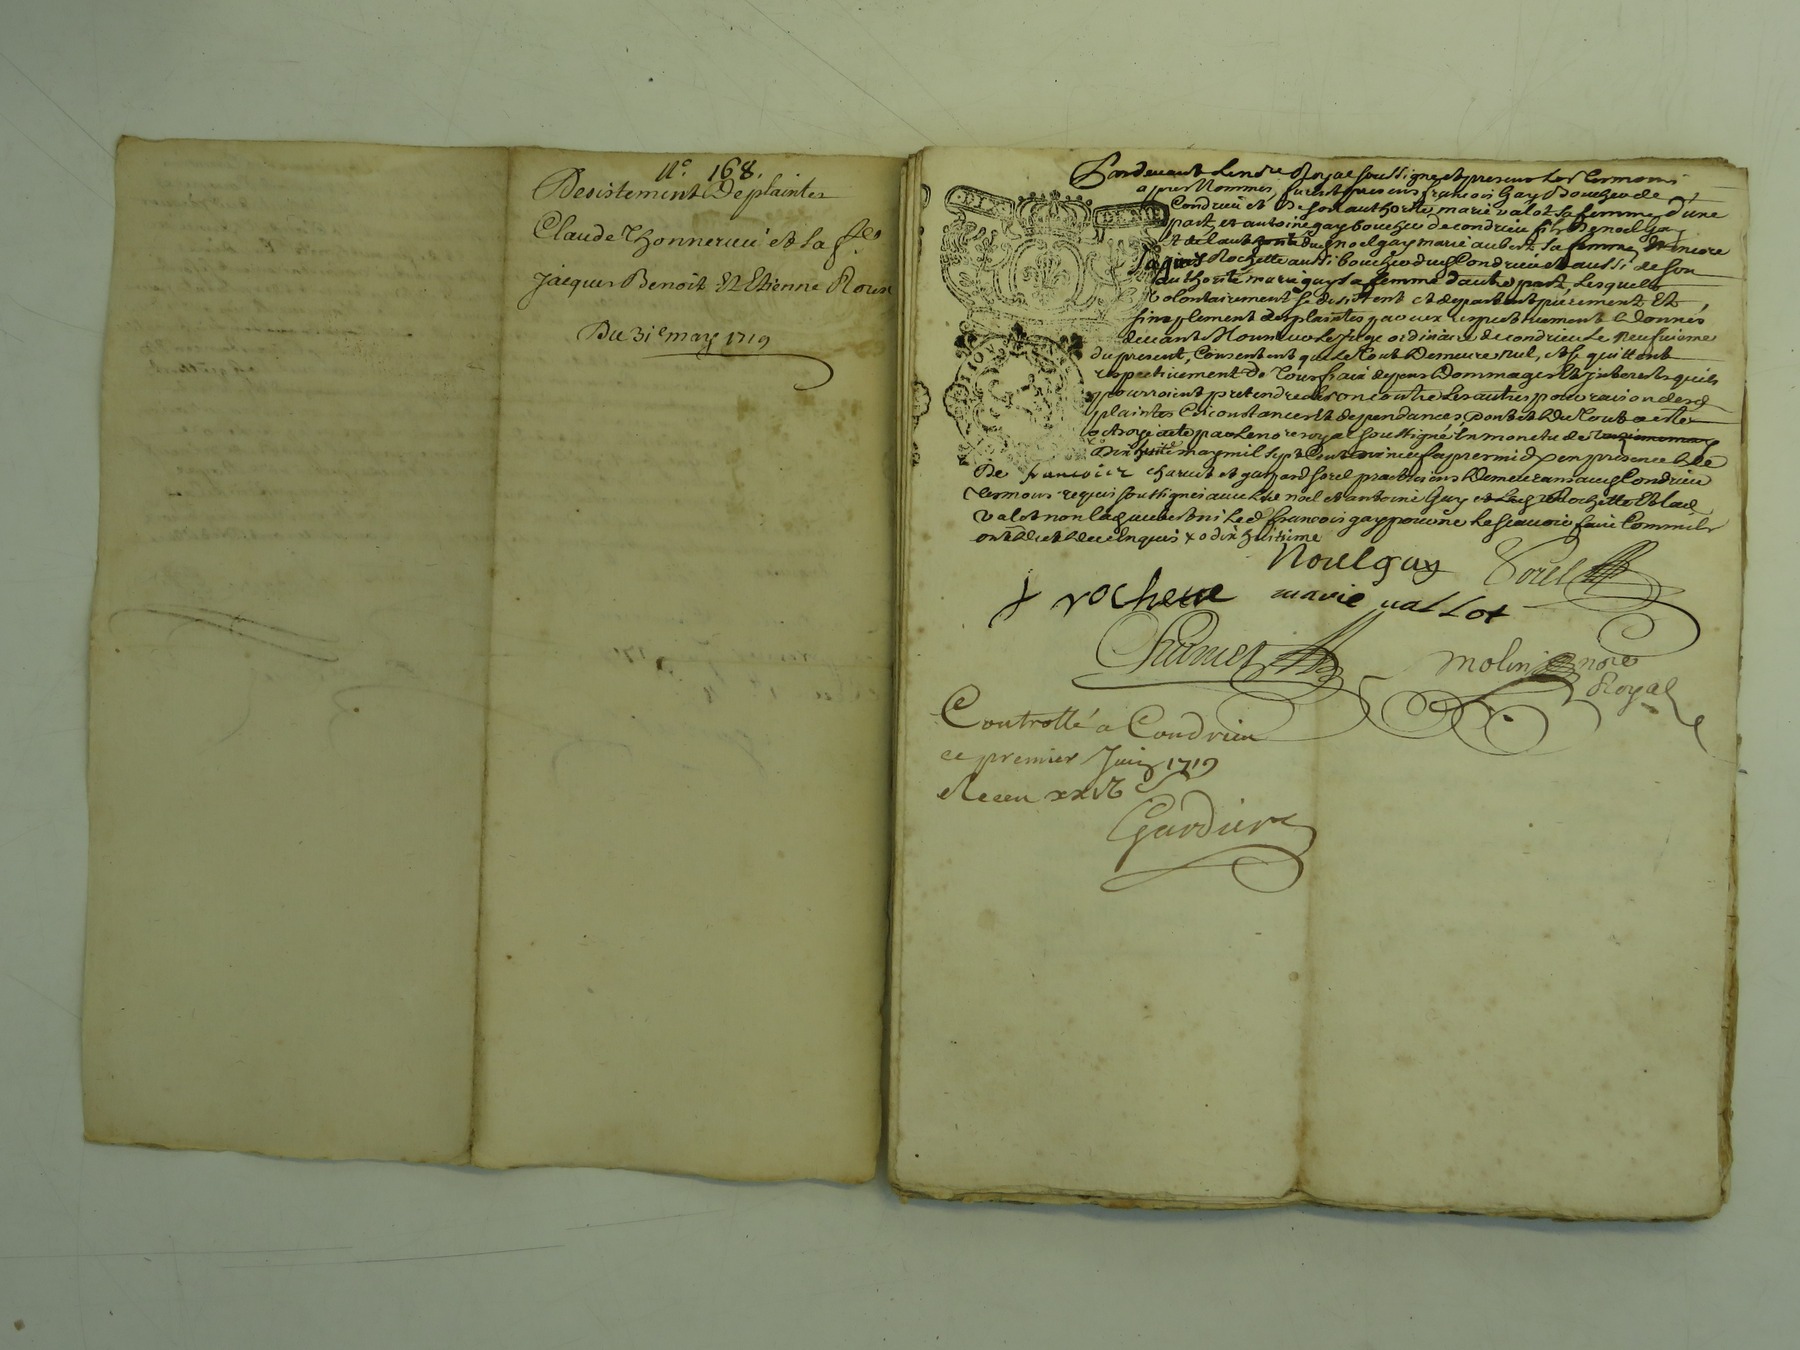 N.° 168.
Desistement De plaintes
Claude Thonnerieu et Sa f.e
Jacques Benoit Et Etienne Roux
Du 31e may 1719
Pardevant Le no.re Royal soussigné et presens Les Tesmoins
apres Nommés, furent presens françois Gay Boucher de
Condrieu et De son authorité marie valot sa femme d'une
part, et antoine gay boucher de condrieu fils De noel gay
noel gay marie aubert sa femme, Et encore
Rochette aussi boucher dud Condrieu et aussi de son
authorité marie gay sa femme d'autre part, Lesquels
volontairement se desistent et departent purement Et
simplement des plaintes par eux respectivement Donnés
devant Monsieur Le Juge ordinaire de condrieu Le neufvieme
du present, Consentent que Le tout Demeure nul, et se quittent
respectivement De tous frais depens Dommages Et interests quils
pourroient pretendre les uns contre Les autres pour raison desd
plaintes Circonstances Et dependances, Dont et Du tout a esté
octroyé acte par Le no.re royal soussigné En mon etude
may mil sept Cent dix neuf apres midy en presence De
De francois charvet et gaspard sorel praticiens Demeurans aud Condrieu
Tesmoins requis soussignes avec Led noel et antoine Gay et Led Rochette Et Lad
valot non Lad aubert ni Led francois gay pour ne Le scavoir faire Comme ils
ont Dit De ce Enquis x o dix huitieme
Noel gay Sorel
J rochette marie vallot
Charvet Molin no.re
Royal
Controllé a Condrieu
ce premier Juin 1719
Receu
Gardier